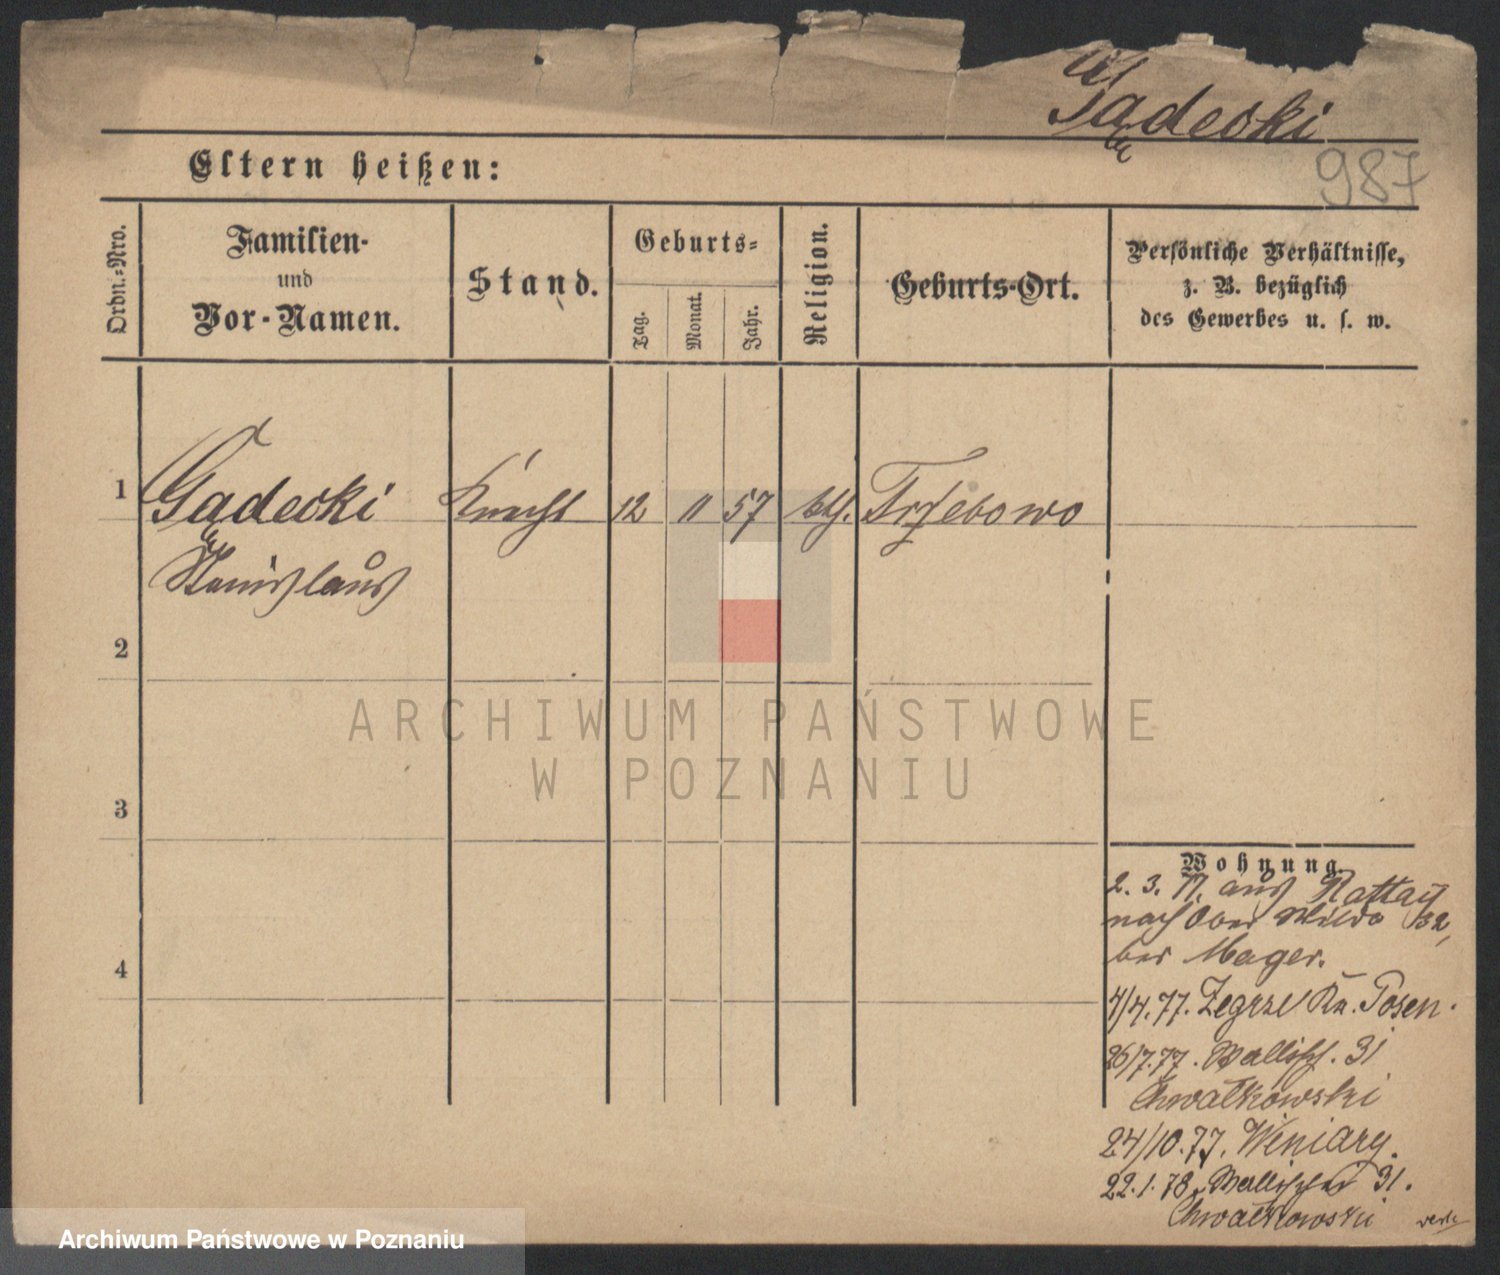 Gądecki
987
Eltern heißen:
Ordn.-Nro.
Familien-
und
Vor-Namen.
Stand.
Geburts-
Tag.
Monat.
Jahr.
Religion.
Geburts-Ort.
Persönliche Verhältnisse,
z. B. bezüglich
des Gewerbes u. s. w.
1 Gądecki Knecht 12 11 57 kth. Trzebowo
Stanislaus
2
3
4
Wohnung.
2. 3. 77. aus Rattay
nach Ober Wilda 32,
bei Mager.
4/4. 77. Zegrze Kr. Posen.
26/7. 77. Wallisch. 31
Chwałkowski
24/10. 77. Winiary.
22. 1. 78. Wallischei 31.
Chwałkowski
ARCHIWUM PAŃSTWOWE
W POZNANIU
Archiwum Państwowe w Poznaniu